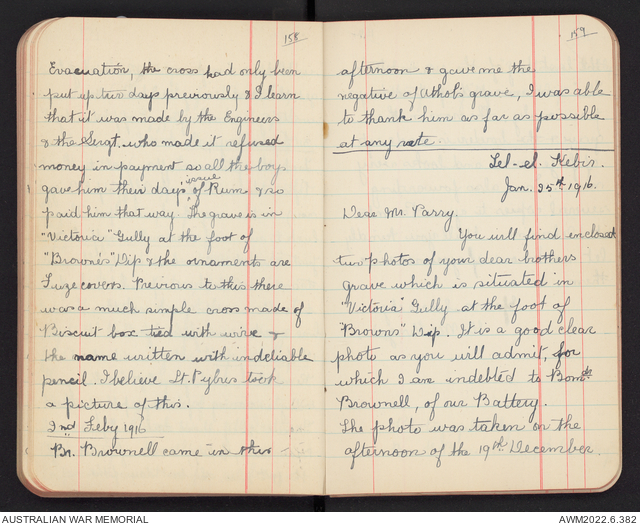 158
Evacuation, the cross had only been
put up two days previously & I learn
that it was made by the Engineers
& the Sergt. who made it refused
money in payment so all the boys
gave him their days issue of Rum & so
paid him that way. The grave is in
"Victoria" Gully at the foot of
"Browne's" Dip & the ornaments are
Fuze covers. Previous to this there
was a much simple cross made of
Biscuit box tied with wire &
the name written with indeliable
pencil. I believe Lt. Pybus took
a picture of this.
2nd Feby 1916
Br. Brownell came in this
159
afternoon & gave me the
negative of Athol's grave, I was able
to thank him as far as possible
at any rate.
Tel-el. Kebir.
Jan. 25th 1916.
Dear Mr. Parry.
You will find enclosed
two photos of your dear brothers
grave which is situated in
"Victoria" Gully at the foot of
"Browns" Dip. It is a good clear
photo as you will admit, for
which I am indebted to Bomdr
Brownell, of our Battery.
The photo was taken on the
afternoon of the 19th December
AUSTRALIAN WAR MEMORIAL
AWM2022.6.382